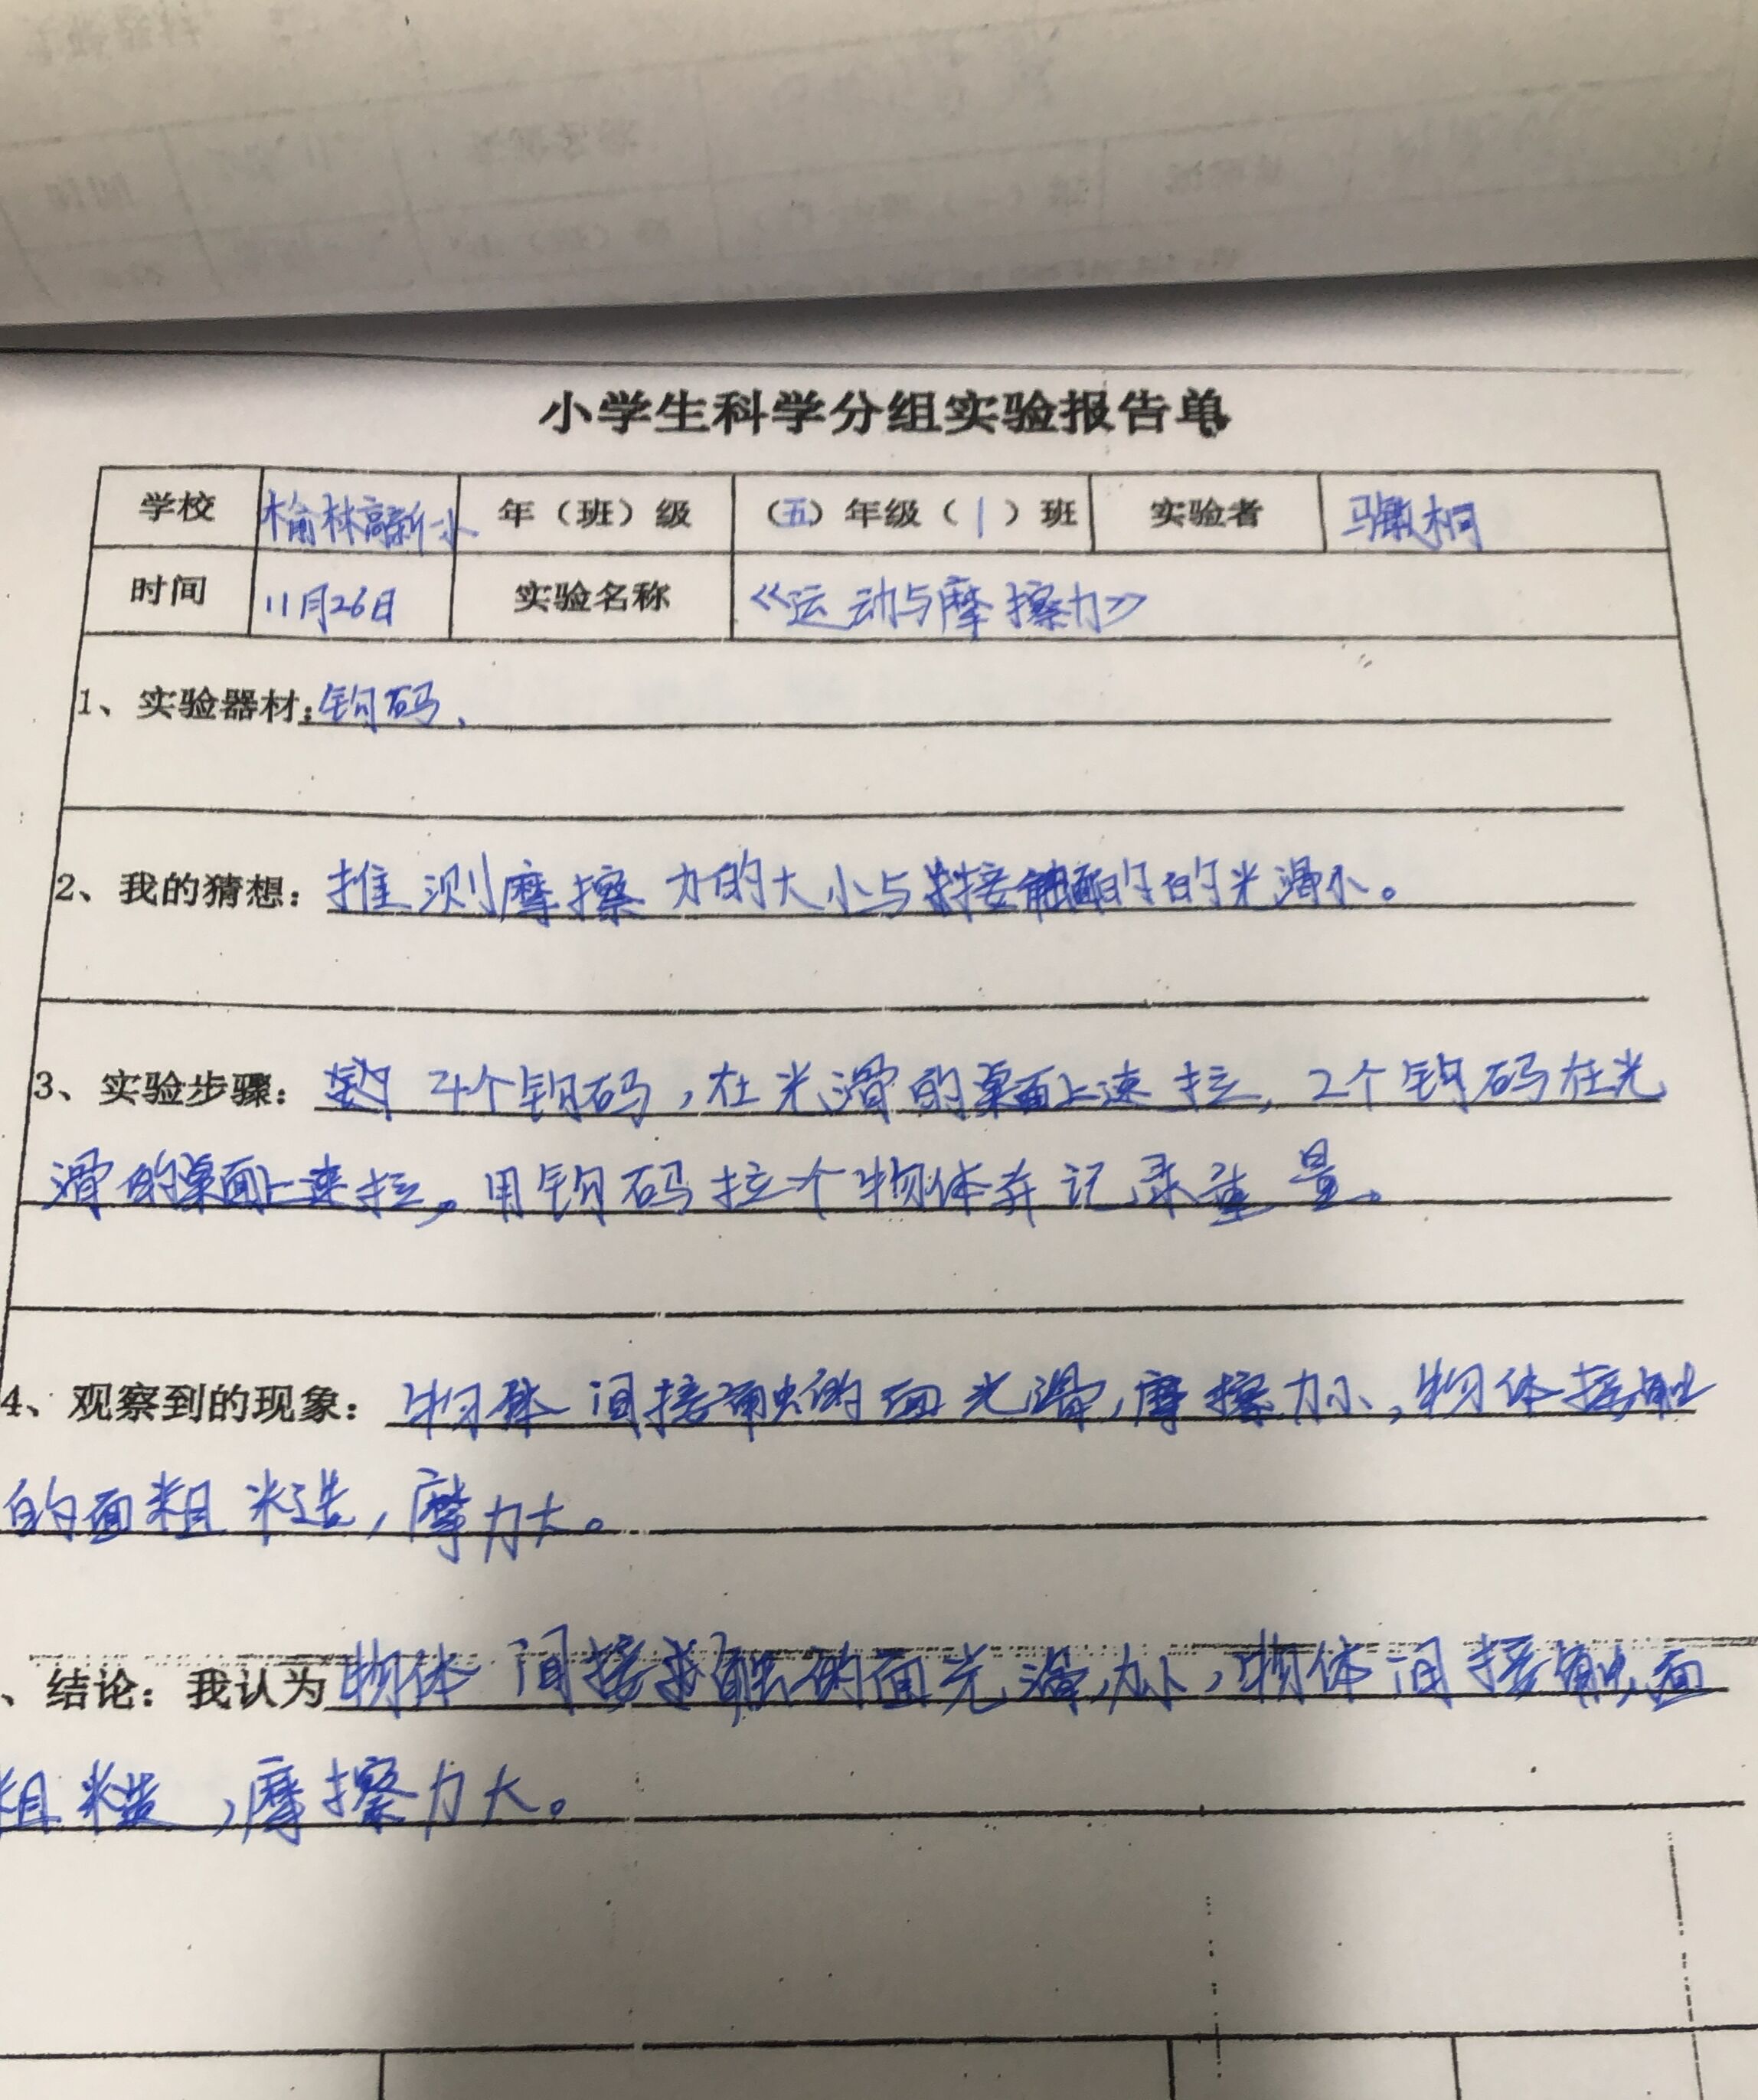 小学生科学分组实验报告单
学校 榆林高新一小 年（班）级 （五）年级（1）班 实验者 马敏桐
时间 11月26日 实验名称 《运动与摩擦力》
1、实验器材：钩码、
2、我的猜想：推测摩擦力的大小与接触面的的光滑小。
3、实验步骤：4个钩码，在光滑的桌面上速拉，2个钩码在光
滑的桌面上速拉。用钩码拉个物体并记录重量。
4、观察到的现象：物体间接触的面光滑，摩擦力小，物体接触
的面粗糙，摩力大。
、结论：我认为物体间接触的面光滑，力小，物体间接触面
粗糙，摩擦力大。